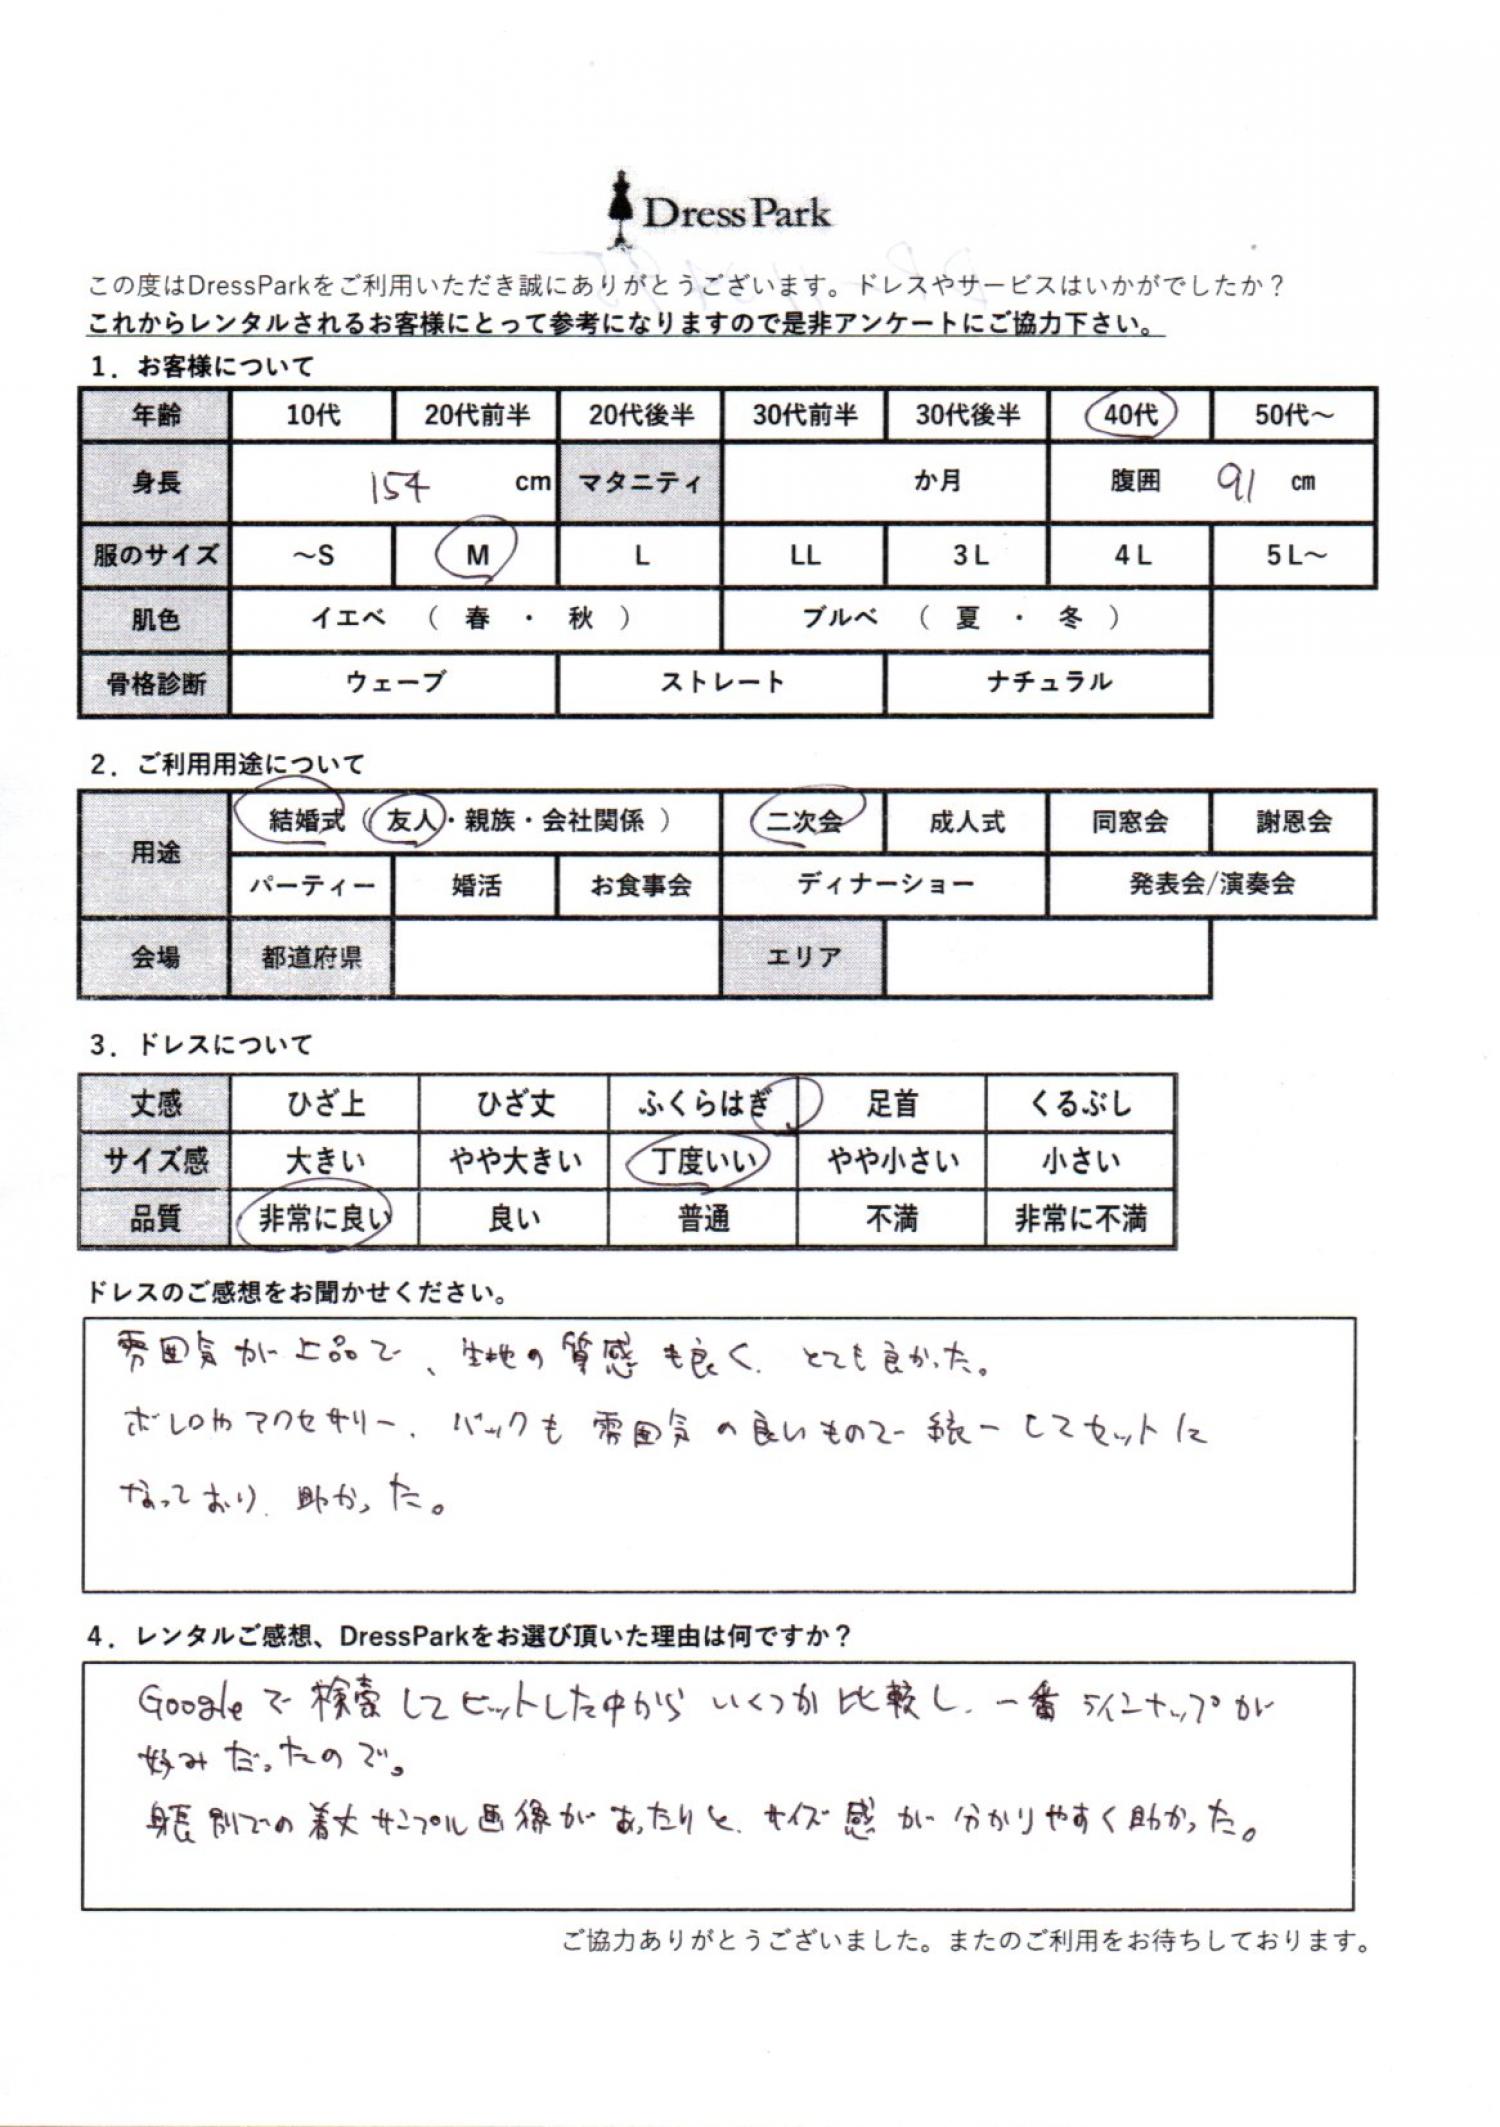 DressPark
この度はDressParkをご利用いただき誠にありがとうございます。ドレスやサービスはいかがでしたか？
これからレンタルされるお客様にとって参考になりますので是非アンケートにご協力下さい。
1．お客様について
年齢 10代 20代前半 20代後半 30代前半 30代後半 40代 50代～
身長 154 cm マタニティ か月 腹囲 91 cm
服のサイズ ～S M L LL 3L 4L 5L～
肌色 イエベ （ 春 ・ 秋 ） ブルべ （ 夏 ・ 冬 ）
骨格診断 ウェーブ ストレート ナチュラル
2．ご利用用途について
用途 結婚式（友人・親族・会社関係） 二次会 成人式 同窓会 謝恩会
パーティー 婚活 お食事会 ディナーショー 発表会/演奏会
会場 都道府県 エリア
3．ドレスについて
丈感 ひざ上 ひざ丈 ふくらはぎ 足首 くるぶし
サイズ感 大きい やや大きい 丁度いい やや小さい 小さい
品質 非常に良い 良い 普通 不満 非常に不満
ドレスのご感想をお聞かせください。
雰囲気が上品で、生地の質感も良く、とても良かった。
ボレロやアクセサリー、バックも雰囲気の良いもので統一してセットに
なっており、助かった。
4．レンタルご感想、DressParkをお選び頂いた理由は何ですか？
Googleで検索してヒットした中からいくつか比較し、一番ラインナップが
好みだったので。
身長別での着丈サンプル画像があったりと、サイズ感が分かりやすく助かった。
ご協力ありがとうございました。またのご利用をお待ちしております。